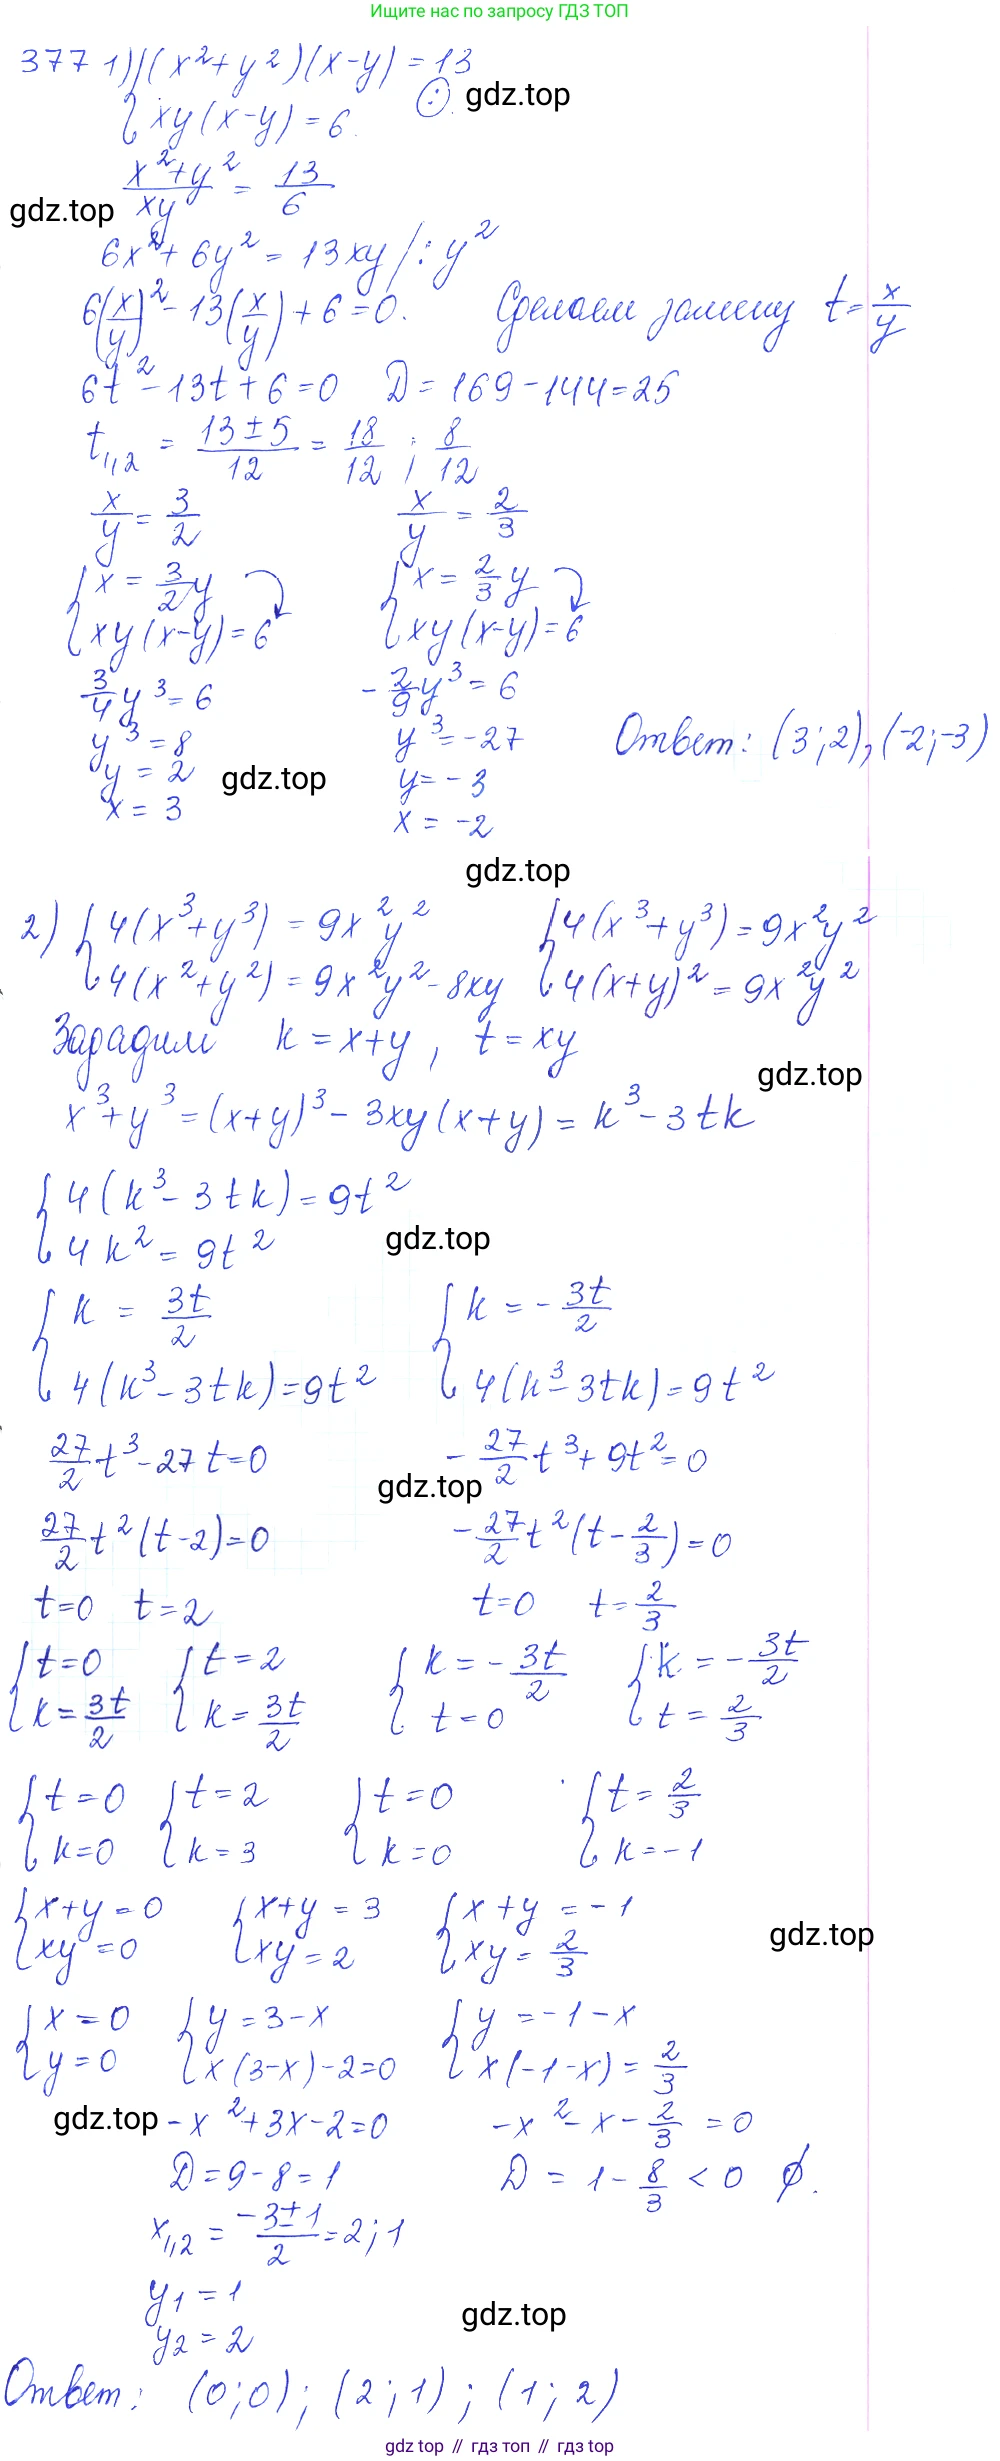 Ищите нас по запросу ГДЗ ТОП
377 1) { (x²+y²)(x-y) = 13
{ xy(x-y) = 6. (:)
gdz.top
(x²+y²)/(xy) = 13/6
gdz.top
6x²+6y² = 13xy /: y²
6(x/y)² - 13(x/y) + 6 = 0. Сделаем замену t = x/y
6t² - 13t + 6 = 0 D = 169 - 144 = 25
t₁,₂ = (13±5)/12 = 18/12 ; 8/12
x/y = 3/2 x/y = 2/3
{ x = 3/2 y { x = 2/3 y
{ xy(x-y) = 6 { xy(x-y) = 6
3/4 y³ = 6 - 2/9 y³ = 6
y³ = 8 y³ = -27 Ответ: (3;2), (-2;-3)
y = 2 gdz.top y = -3
x = 3 x = -2
gdz.top
2) { 4(x³+y³) = 9x²y² { 4(x³+y³) = 9x²y²
{ 4(x²+y²) = 9x²y² - 8xy { 4(x+y)² = 9x²y²
Зададим k = x+y, t = xy
gdz.top
x³+y³ = (x+y)³ - 3xy(x+y) = k³ - 3tk
{ 4(k³ - 3tk) = 9t²
{ 4k² = 9t²
gdz.top
{ k = 3t/2 { k = - 3t/2
{ 4(k³ - 3tk) = 9t² { 4(k³ - 3tk) = 9t²
27/2 t³ - 27t = 0 - 27/2 t³ + 9t² = 0
gdz.top
27/2 t² (t-2) = 0 - 27/2 t² (t - 2/3) = 0
t=0 t=2 t=0 t = 2/3
{ t=0 { t=2 { k = - 3t/2 { k = - 3t/2
{ k = 3t/2 { k = 3t/2 { t = 0 { t = 2/3
{ t=0 { t=2 { t=0 { t = 2/3
{ k=0 { k=3 { k=0 { k=-1
{ x+y = 0 { x+y = 3 { x+y = -1
{ xy = 0 { xy = 2 { xy = 2/3
gdz.top
{ x = 0 { y = 3-x { y = -1-x
{ y = 0 { x(3-x) - 2 = 0 { x(-1-x) = 2/3
gdz.top -x² + 3x - 2 = 0 -x² - x - 2/3 = 0
D = 9-8 = 1 D = 1 - 8/3 < 0 ∅.
x₁,₂ = (-3±1)/2 = 2; 1
y₁ = 1
gdz.top
y₂ = 2
Ответ: (0;0); (2;1); (1;2)
gdz top // гдз топ // гдз top